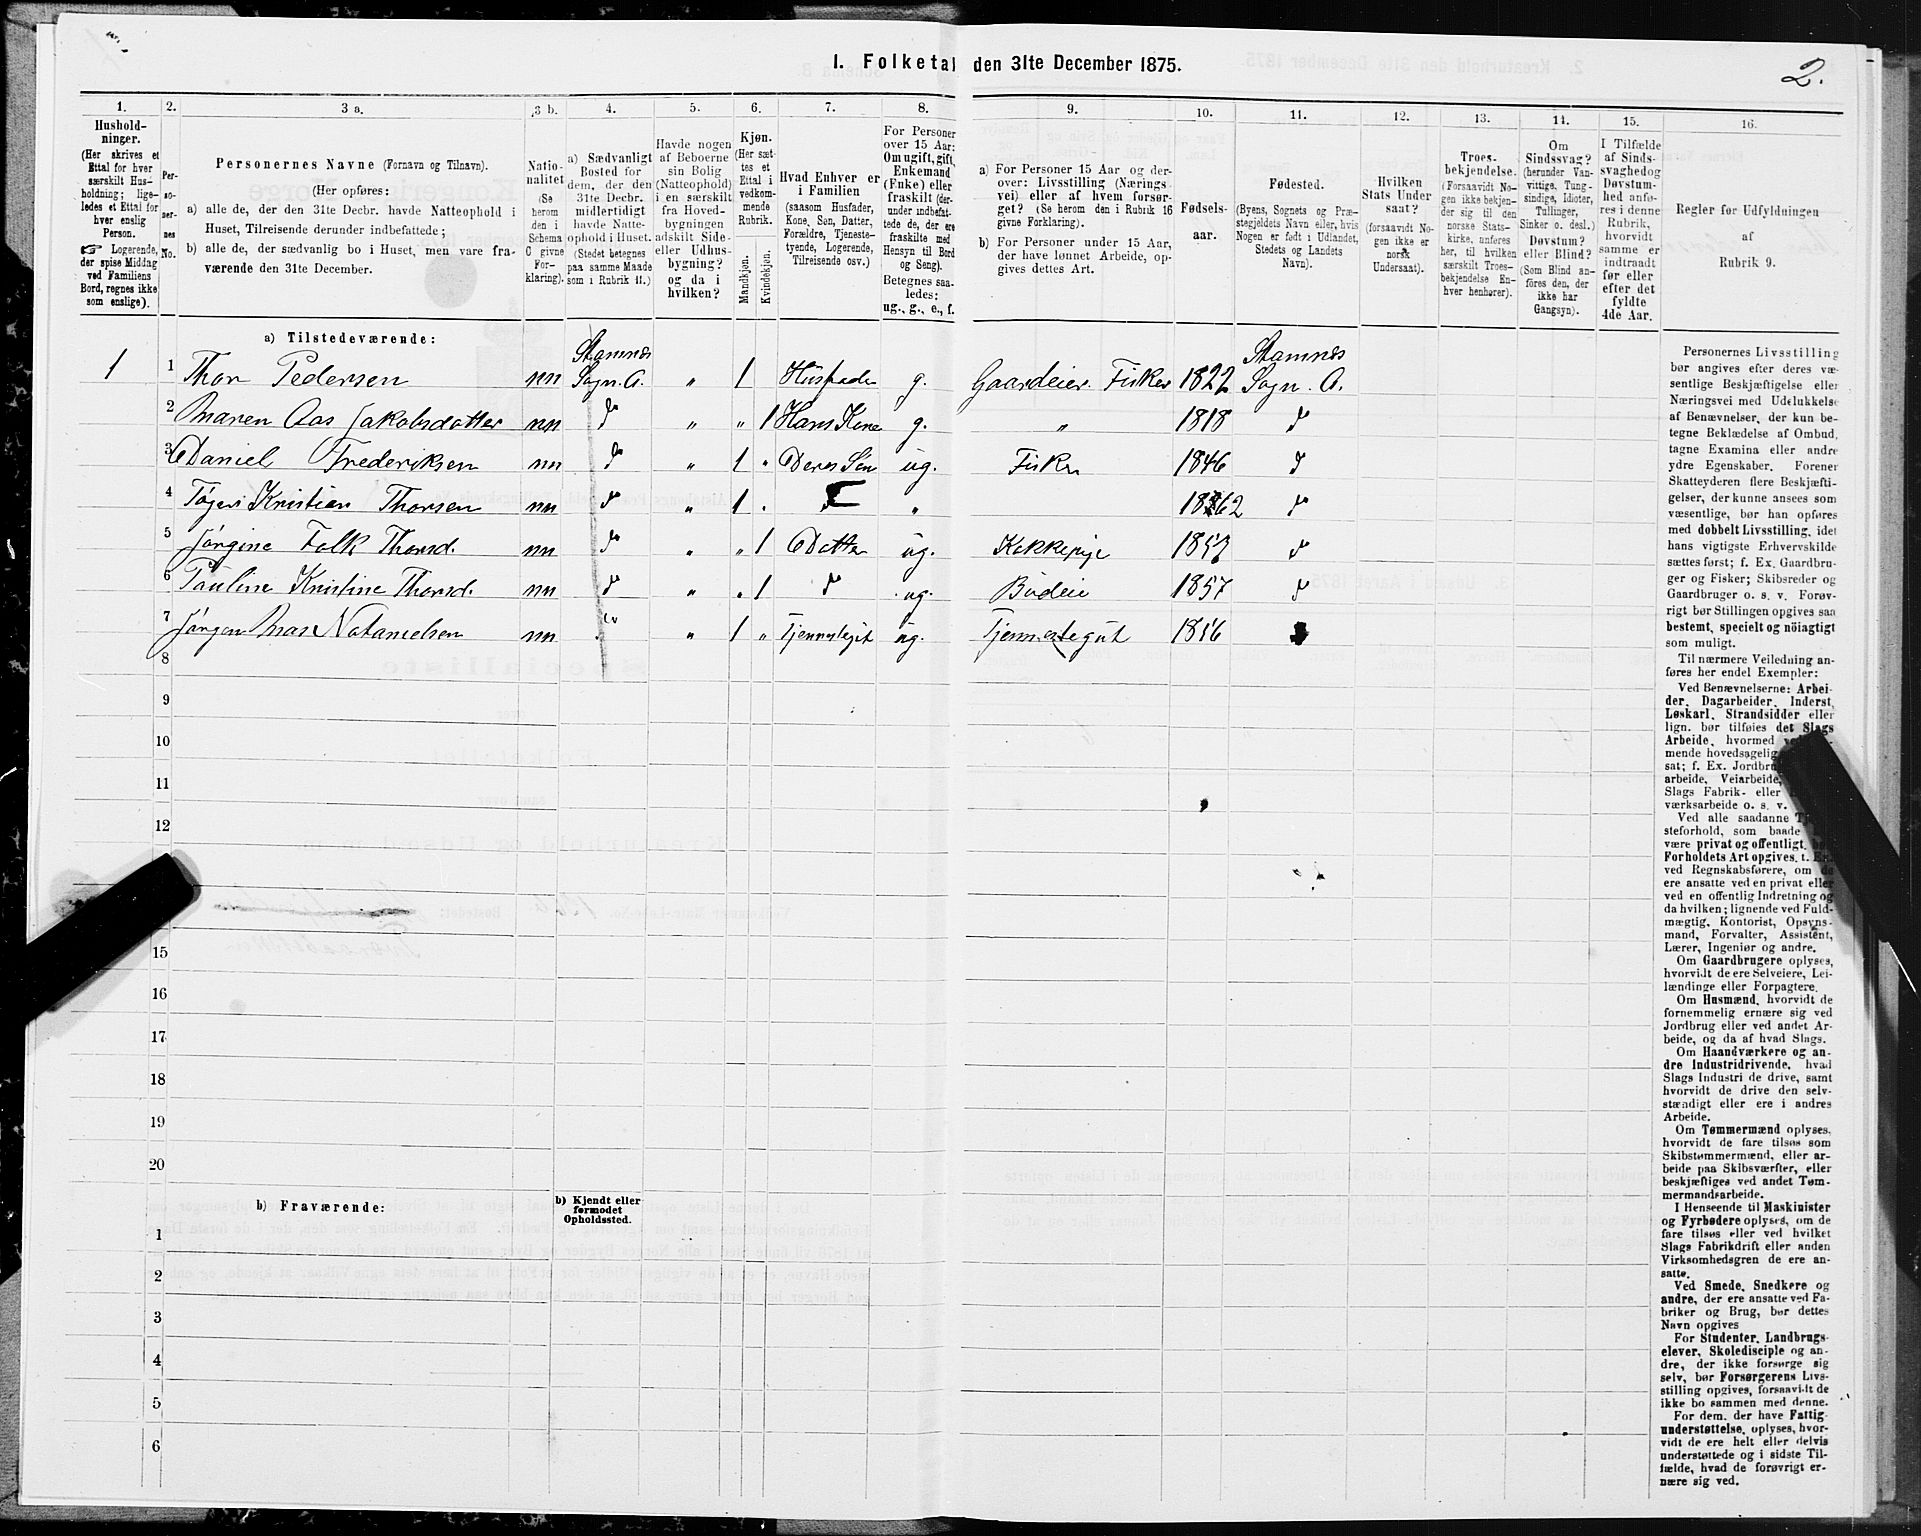 1. Folketal den 31te December 1875.
2.
1. 2. 3 a. 3 b. 4. 5. 6. 7. 8. 9. 10. 11. 12. 13. 14. 15. 16.
Hushold-
ninger.
(Her skrives et
Ettal for hver
særskilt Hus-
holdning; lige-
ledes et Ettal for
hver enslig
Person.
☞ Logerende,
der spise Middag
ved Familiens
Bord, regnes ikke
som enslige).
Per-
so-
ner-
nes
No.
Personernes Navne (Fornavn og Tilnavn).
(Her opføres:
a) alle de, der den 31te Decbr. havde Natteophold i
Huset, Tilreisende derunder indbefattede;
b) alle de, der sædvanlig bo i Huset, men vare fra-
værende den 31te December.
Natio-
nalitet
(Se
herom
den i
Schema
C givne
For-
klaring).
a) Sædvanligt
Bosted for
dem, der den
31te Decbr.
midlertidigt
havde Natte-
ophold i Huset.
(Stedet betegnes
paa samme Maade
som i Rubrik 11.)
Havde nogen
af Beboerne
sin Bolig
(Natteophold)
i en særskilt
fra Hoved-
bygningen
adskilt Side-
eller Udhus-
bygning?
og da i
hvilken?
Kjøn.
(Her sæt-
tes et
Ettal i
vedkom-
mende
Rubrik.
Mandkjøn.
Kvindekjøn.
Hvad Enhver er
i Familien
(saasom Husfader,
Kone, Søn, Datter,
Forældre, Tjeneste-
tyende, Logerende,
Tilreisende osv.)
For Personer
over 15 Aar:
Om ugift, gift,
Enkemand
(Enke) eller
fraskilt (der-
under indbefat-
tede de, der ere
fraskilte med
Hensyn til Bord
og Seng).
Betegnes saa-
ledes:
ug., g., e., f.
a) For Personer 15 Aar og der-
over: Livsstilling (Nærings-
vei) eller af hvem forsør-
get? (Se herom den i Rubrik 16
givne Forklaring).
b) For Personer under 15 Aar,
der have lønnet Arbeide, op-
gives dettes Art.
Fødsels-
aar.
Fødested.
(Byens, Sognets og Præ-
stegjeldets Navn eller, hvis
Nogen er født i Udlandet,
Stedets og Landets
Navn).
Hvilken
Stats Under-
saat?
(forsaavidt No-
gen ikke er
norsk
Undersaat).
Troes-
bekjendelse.
(Forsaavidt No-
gen ikke bekjen-
der sig til den
norske Stats-
kirke, anføres
her, til hvilken
særskilt Troes-
bekjendelse En-
hver henhører).
Om
Sindssvag?
(herunder Van-
vittige, Tung-
sindige, Idioter,
Tullinger,
Sinker o. desl.)
Døvstum?
eller Blind?
(Som Blind an-
føres den, der
ikke har
Gangsyn).
I Tilfælde
af Sinds-
svaghed og
Døvstum-
hed anfø-
res i denne
Rubrik,
hvorvidt
samme er
indtraadt
før eller
efter det
fyldte
4de Aar.
Regler for Udfyldningen
af
Rubrik 9.
a) Tilstedeværende:
Stamnes Stamnes
1 1 Thor Pedersen nn Sogn. A. „ 1 Husfader g. Gaardeier Fisker 1822 Sogn. A.
2 Maren Aas Jakobsdatter nn d° „ „ 1 Hans Kone g. „ 1818 d°
3 Daniel Frederiksen nn d° „ 1 „ Deres Søn ug. Fisker 1846 d°
4 Kristian Thorsen nn d° „ 1 „ „ 1862 d°
5 Jørgine Falk Thorsd. nn d° „ „ 1 Datter ug. Kokkepige d°
6 Pauline Kristine Thorsd. nn d° „ „ 1 d° ug. Budeie 1857 d°
7 Jørgen Natanielsen nn „ 1 „ Tjenestegut ug. Tjenestegut
8
9
10
11
12
15
16
17
18
19
20
b) Fraværende:
b) Kjendt eller
formodet
Opholdssted.
1
2
3
4
5
6
Personernes Livsstilling
bør angives efter deres væ-
sentlige Beskjæftigelse eller
Næringsvei med Udelukkelse
af Benævnelser, der kun be-
tegne Beklædelse af Ombud,
tagne Examina eller andre
ydre Egenskaber. Forener
Skatteyderen flere Beskjæfti-
gelser, der kunne ansees som
væsentlige, bør han opføres
med dobbelt Livsstilling, idet
hans vigtigste Erhvervskilde
sættes først; f. Ex. Gaardbru-
ger og Fisker; Skibsreder og
Gaardbruger o. s. v. Forøv-
rigt bør Stillingen opgives saa
bestemt, specielt og nöiagtigt
som muligt.
Til nærmere Veiledning an-
føres her endel Exempler:
Ved Benævnelserne: Arbei-
der, Dagarbeider, Inderst,
Løskarl, Strandsidder eller
lign. bør tilføies det Slags
Arbeide, hvormed
mende hovedsagelig
sat; f. Ex.
arbeide, Veiarbeide,
Slags Fabrik- eller
værksarbeide o. s. v.
Ved alle saadanne
steforhold, som baade
være privat og offentligt,
Forholdets Art opgives, t. Ex.
ved Regnskabsførere, om de
ere ansatte ved en privat eller
ved en offentlig Indretning og
da hvilken; lignende ved Fuld-
mægtig, Kontorist, Opsyns-
mand, Forvalter, Assistent,
Lærer, Ingeniør og andre.
Om Gaardbrugere oplyses,
hvorvidt de ere Selveiere, Lei-
lændinge eller Forpagtere.
Om Husmænd, hvorvidt de
fornemmelig ernære sig ved
Jordbrug eller ved andet Ar-
beide, og da af hvad Slags.
Om Haandværkere og an-
dre Industridrivende, hvad
Slags Industri de drive, samt
hvorvidt de drive den selv-
stændigt eller ere i andres
Arbeide.
Om Tømmermænd oplyses,
hvorvidt de fare tilsøs som
Skibstømmermænd, eller ar-
beide paa Skibsværfter, eller
beskjæftiges ved andet Tøm-
mermandsarbeide.
I Henseende til Maskinister
og Fyrbødere oplyses, om de
fare tilsøs eller ved hvilket
Slags Fabrikdrift eller anden
Virksomhedsgren de ere an-
satte.
Ved Smede, Snedkere og
andre, der ere ansatte ved Fa-
briker og Brug, bør dettes
Navn opgives
For Studenter, Landbrugs-
elever, Skoledisciple og an-
dre, der ikke forsørge sig
selv, bør Forsørgerens Livs-
stilling opgives, forsaavidt de
ikke bo sammen med denne.
For dem, der have Fattig-
understøttelse, oplyses, hvor-
vidt de ere helt eller delvis
understøttede og i sidste Til-
fælde, hvad de forøvrigt er-
nære sig ved.